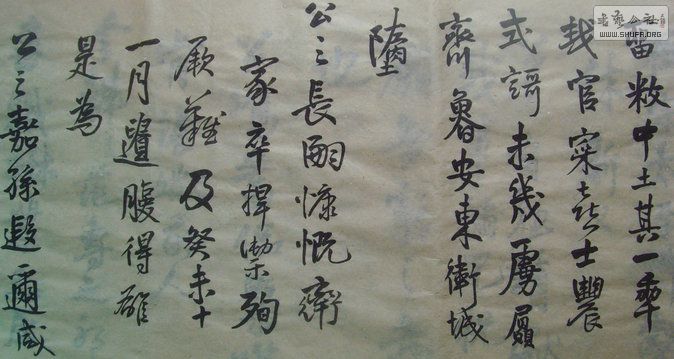 敉中土其一
官寀士農
式謌未幾虜
齊魯安東衛城
墮
公之長嗣慷慨齎
家卒捍禦殉
厥難及癸未十
一月遺腹得雄
是為
公之嘉孫遐邇咸
書藝公社
WWW.SHUFA.ORG